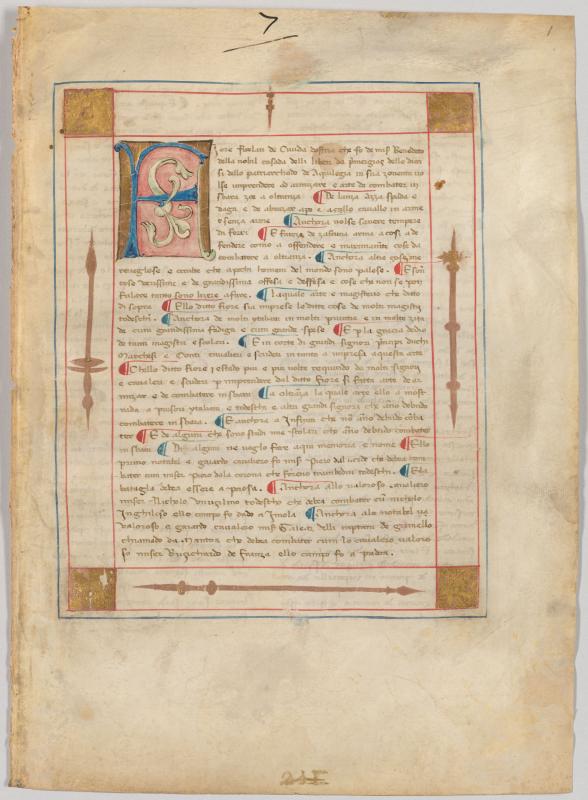 7
1
Fiore Furlan de Cividà dostria che fo de misser Benedeto
della nobil casada delli liberi da premerigas dello dioce
si dello patriarchado de Aquilegia in sua zoventu vo
lse imprendere ad armizare e arte de combater in
sbara zoe a oltranza ¶ De lanza Azza spada e
daga e de abrazar a pe e acavallo in arme
e senza arme ¶ Anchora volse savere tempere
di ferri ¶ E fateze de zaschuna arma a cosi a de
fendere como a offendere e maximamente cose da
combatere a oltranza. ¶ Anchora altre cose me
ravegliose e oculte che a pochi homeni del mondo sono palese. ¶ E sono
cose verissime e de grandissima offesa e deffesa e cose che non se po
falare tanto sono liçere a fare. ¶ La quale arte e magisterio che ditto
di sopra ¶ Ello ditto fiore si a imprese le ditte cose de molti magistri
todeschi. ¶ Anchora de molti ytaliani in molte provincie e in molte zita
de cum grandissima fadiga e cum grande spese ¶ E p la gracia de dio
de tanti magistri e scolari. ¶ E in corte di grandi signori principi duchi
Marchesi e Conti cavalieri e scuderi in tanto a impresa aquesta arte
¶ Ch ello ditto Fiore e stado piu e piu volte requirido da molti signori
e cavalieri e scuderi p imprendere dal ditto Fiore si fatta arte de ar
mizare e de combatere in sbara ¶ a oltranza la quale arte ello a most
rada a piusori ytaliani e todeschi e altri grandi signori che ano debudo
combatere in sbara. ¶ E anchora a infiniti che no ano debudo comba
ter ¶ E de alguni che sono stadi mie scolari che ano debudo combater
in sbara ¶ De alguni ne voglo fare aqui memoria e nome ¶ Ello
primo notabel e gaiardo cavaliero fo miss Piero dal verde che debea com
bater cum miser Piero dala corona che foreno trambedui todeschi. ¶ Ela
bataglia debea essere a perosa. ¶ Anchora allo valoroso cavaliero
miser Nicholo Unrigilino todescho che debea combater cum nicholo
Inghileso ello campo fo dado a Imola ¶ Anchora alo notabel va
loroso e gaiardo cavaliero miss Galeaz delli captani de grimello
chiamado da Mantoa che debea combater cum lo cavaliero valoro
so miser Buzichardo de Franza ello campo fo a padoa.